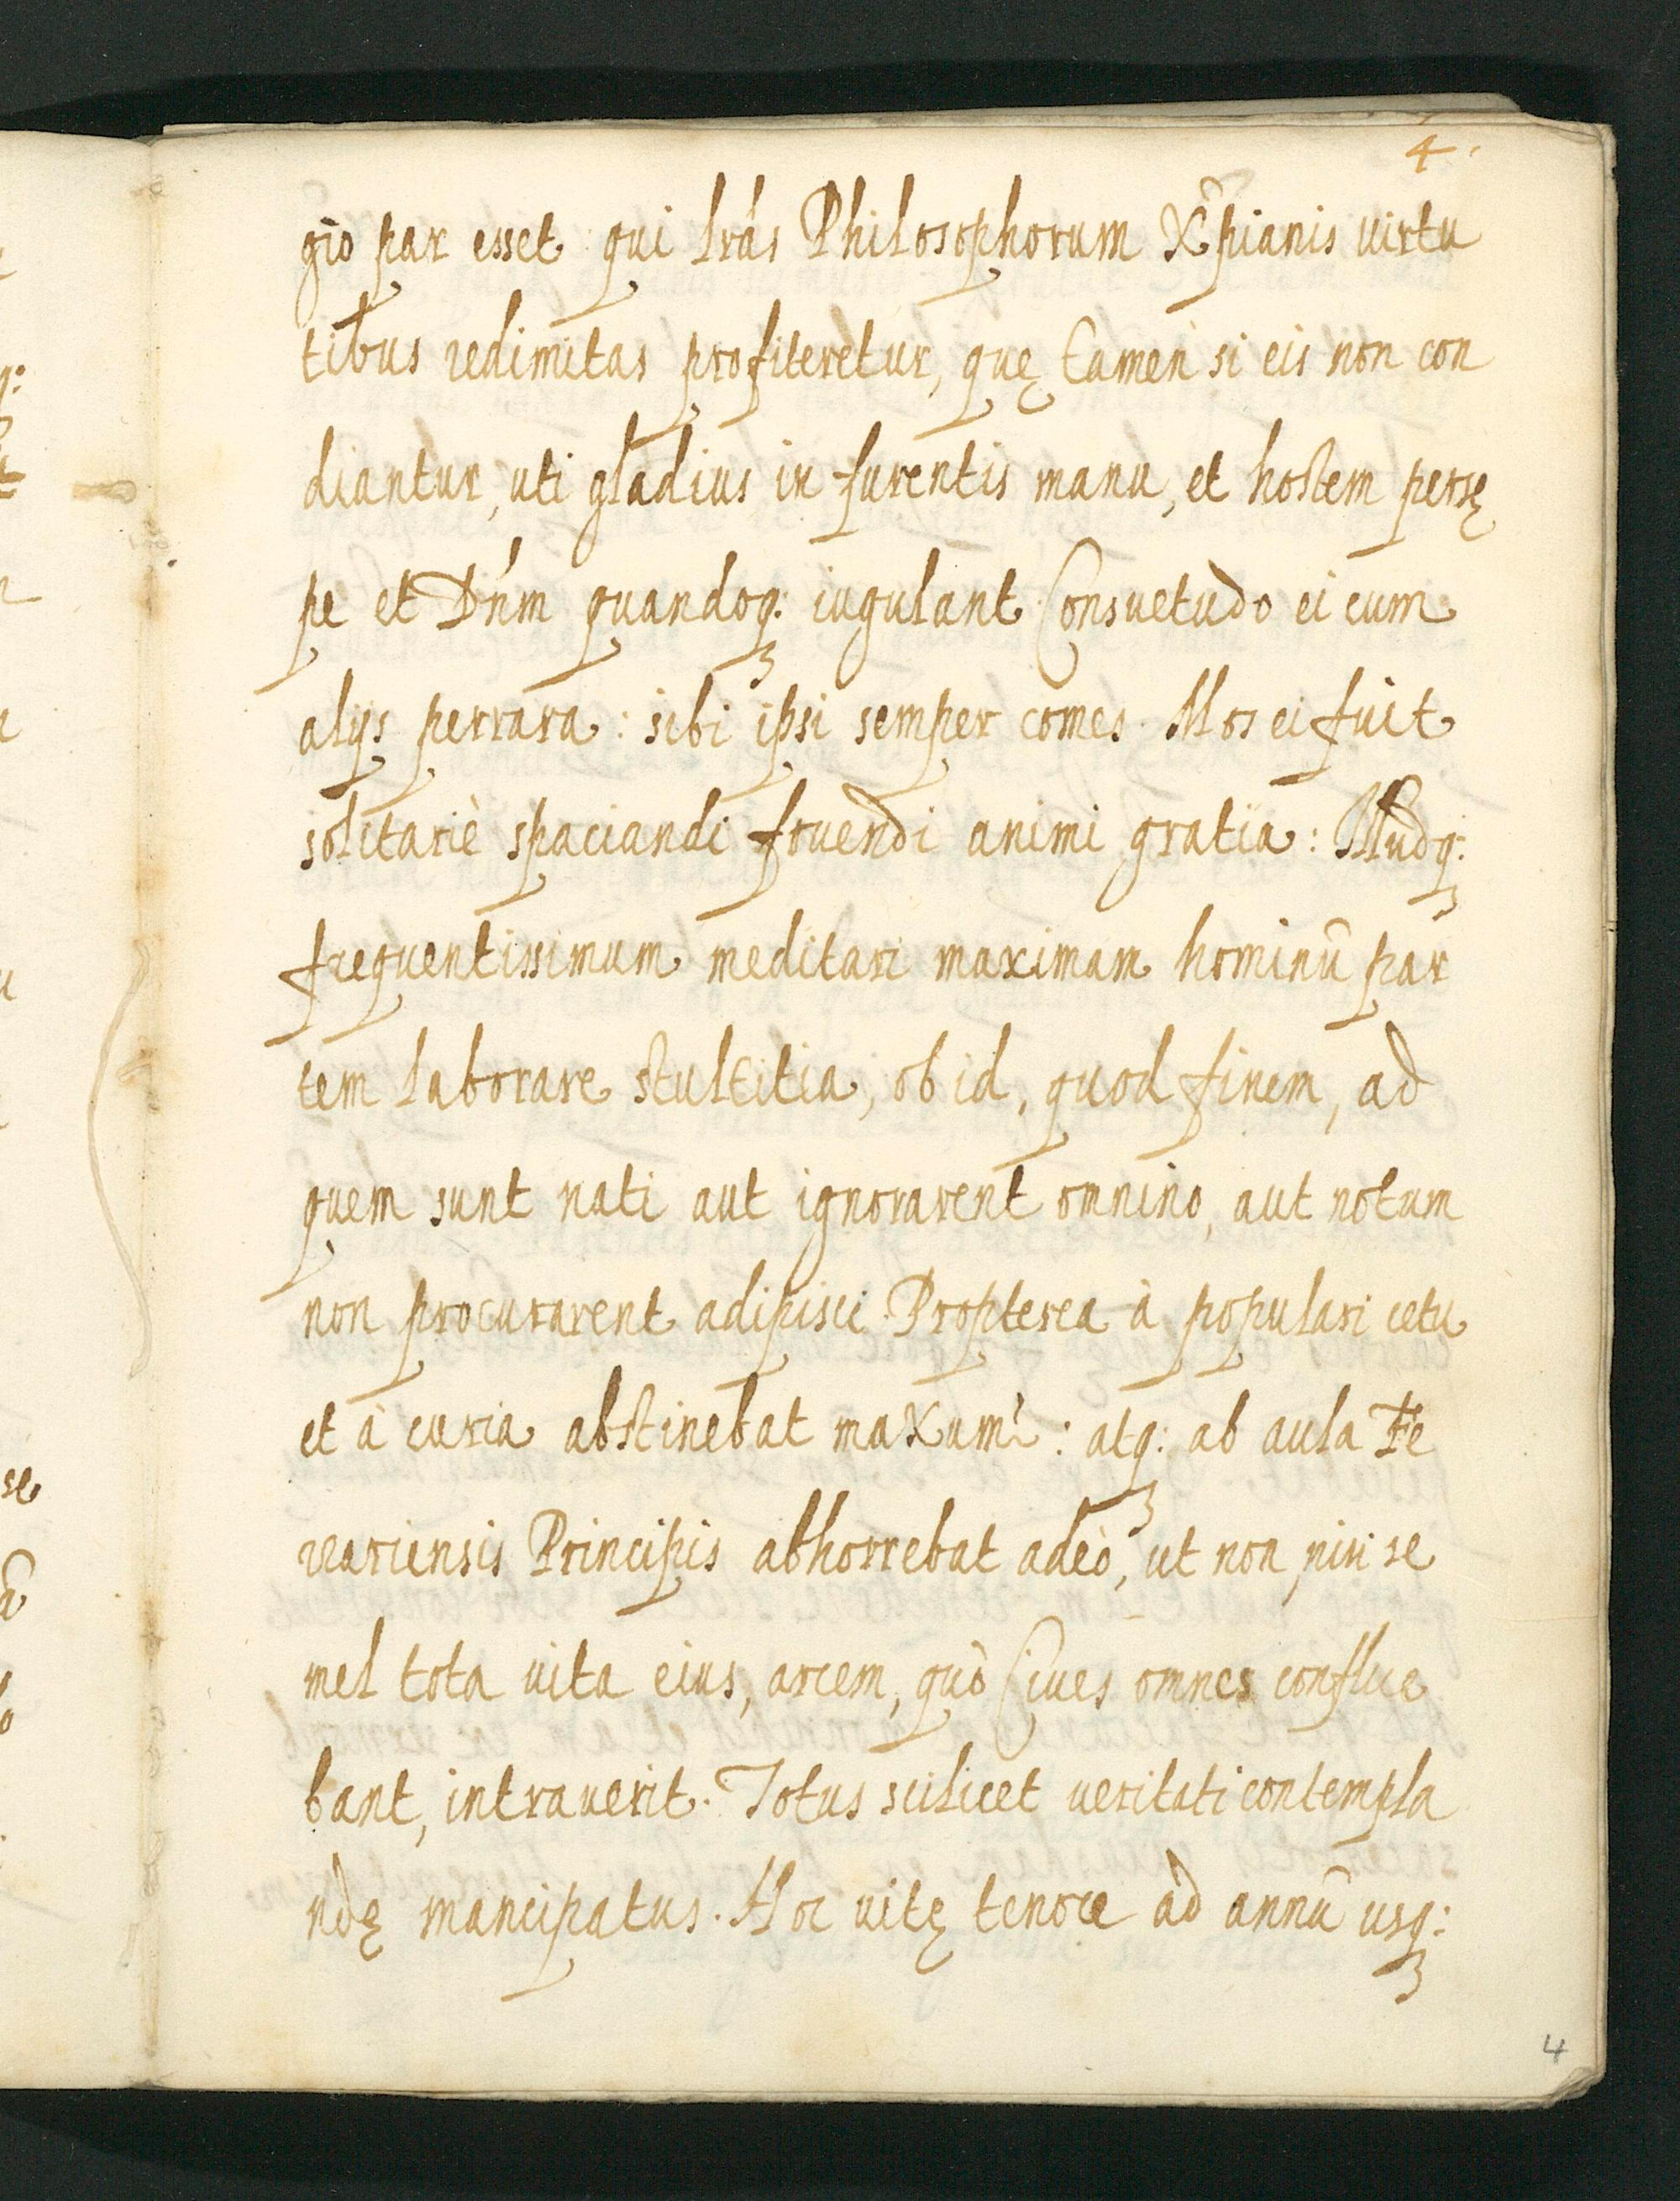 4.
gio par esset qui lrás Philosophorum X̃pianis uirtu
tibus redimitas profiteretur, quę tamen si eis non con
diantur, uti gladius in furentis manu, et hostem persę
pe et Dńm quandoq: iugulant. Consuetudo ei cum
alijs perrara: sibi ipsi semper comes. Mos ei fuit
solitariè spaciandi fruendi animi gratia: Illudq:
frequentissimum meditari maximam hominũ par
tem laborare stultitia, ob id, quod finem, ad
quem sunt nati aut ignorarent omnino, aut notum
non procurarent adipisci. Propterea à populari cetu
et à curia abstinebat maxumè: atq: ab aula Fe
rrariensis Principis abhorrebat adeò, ut non nisi se
mel tota uita eius, arcem, quò Ciues omnes conflue
bant, intrauerit. Totus scilicet ueritati contempla
ndę mancipatus. Hoc uitę tenore ad annũ usq:
4